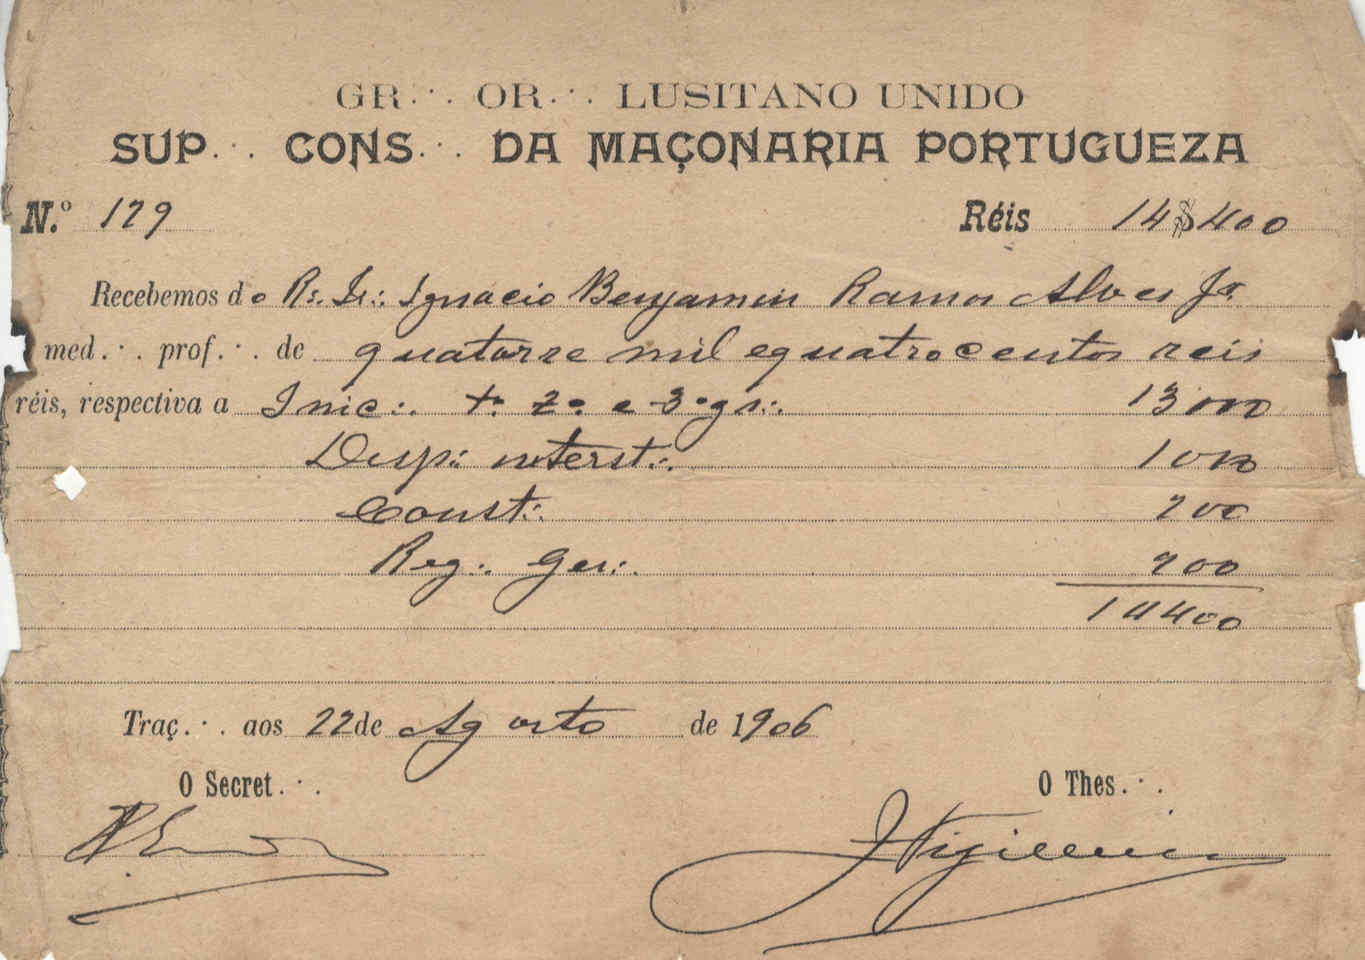 GR.·. OR.·. LUSITANO UNIDO
SUP.·. CONS.·. DA MAÇONARIA PORTUGUEZA
N.º 179 Réis 14$400
Recebemos do R.·. Ir.·. Ignacio Benjamin Ramos Alves Jr
med.·. prof.·. de quatorze mil e quatrocentos reis
réis, respectiva a Inic.·. 2º e 3º gr.·. 13000
Desp.·. interst.·. 1000
Const.·. 200
Reg.·. Ger.·. 200
14400
Traç.·. aos 22 de Agosto de 1906
O Secret.·. O Thes.·.